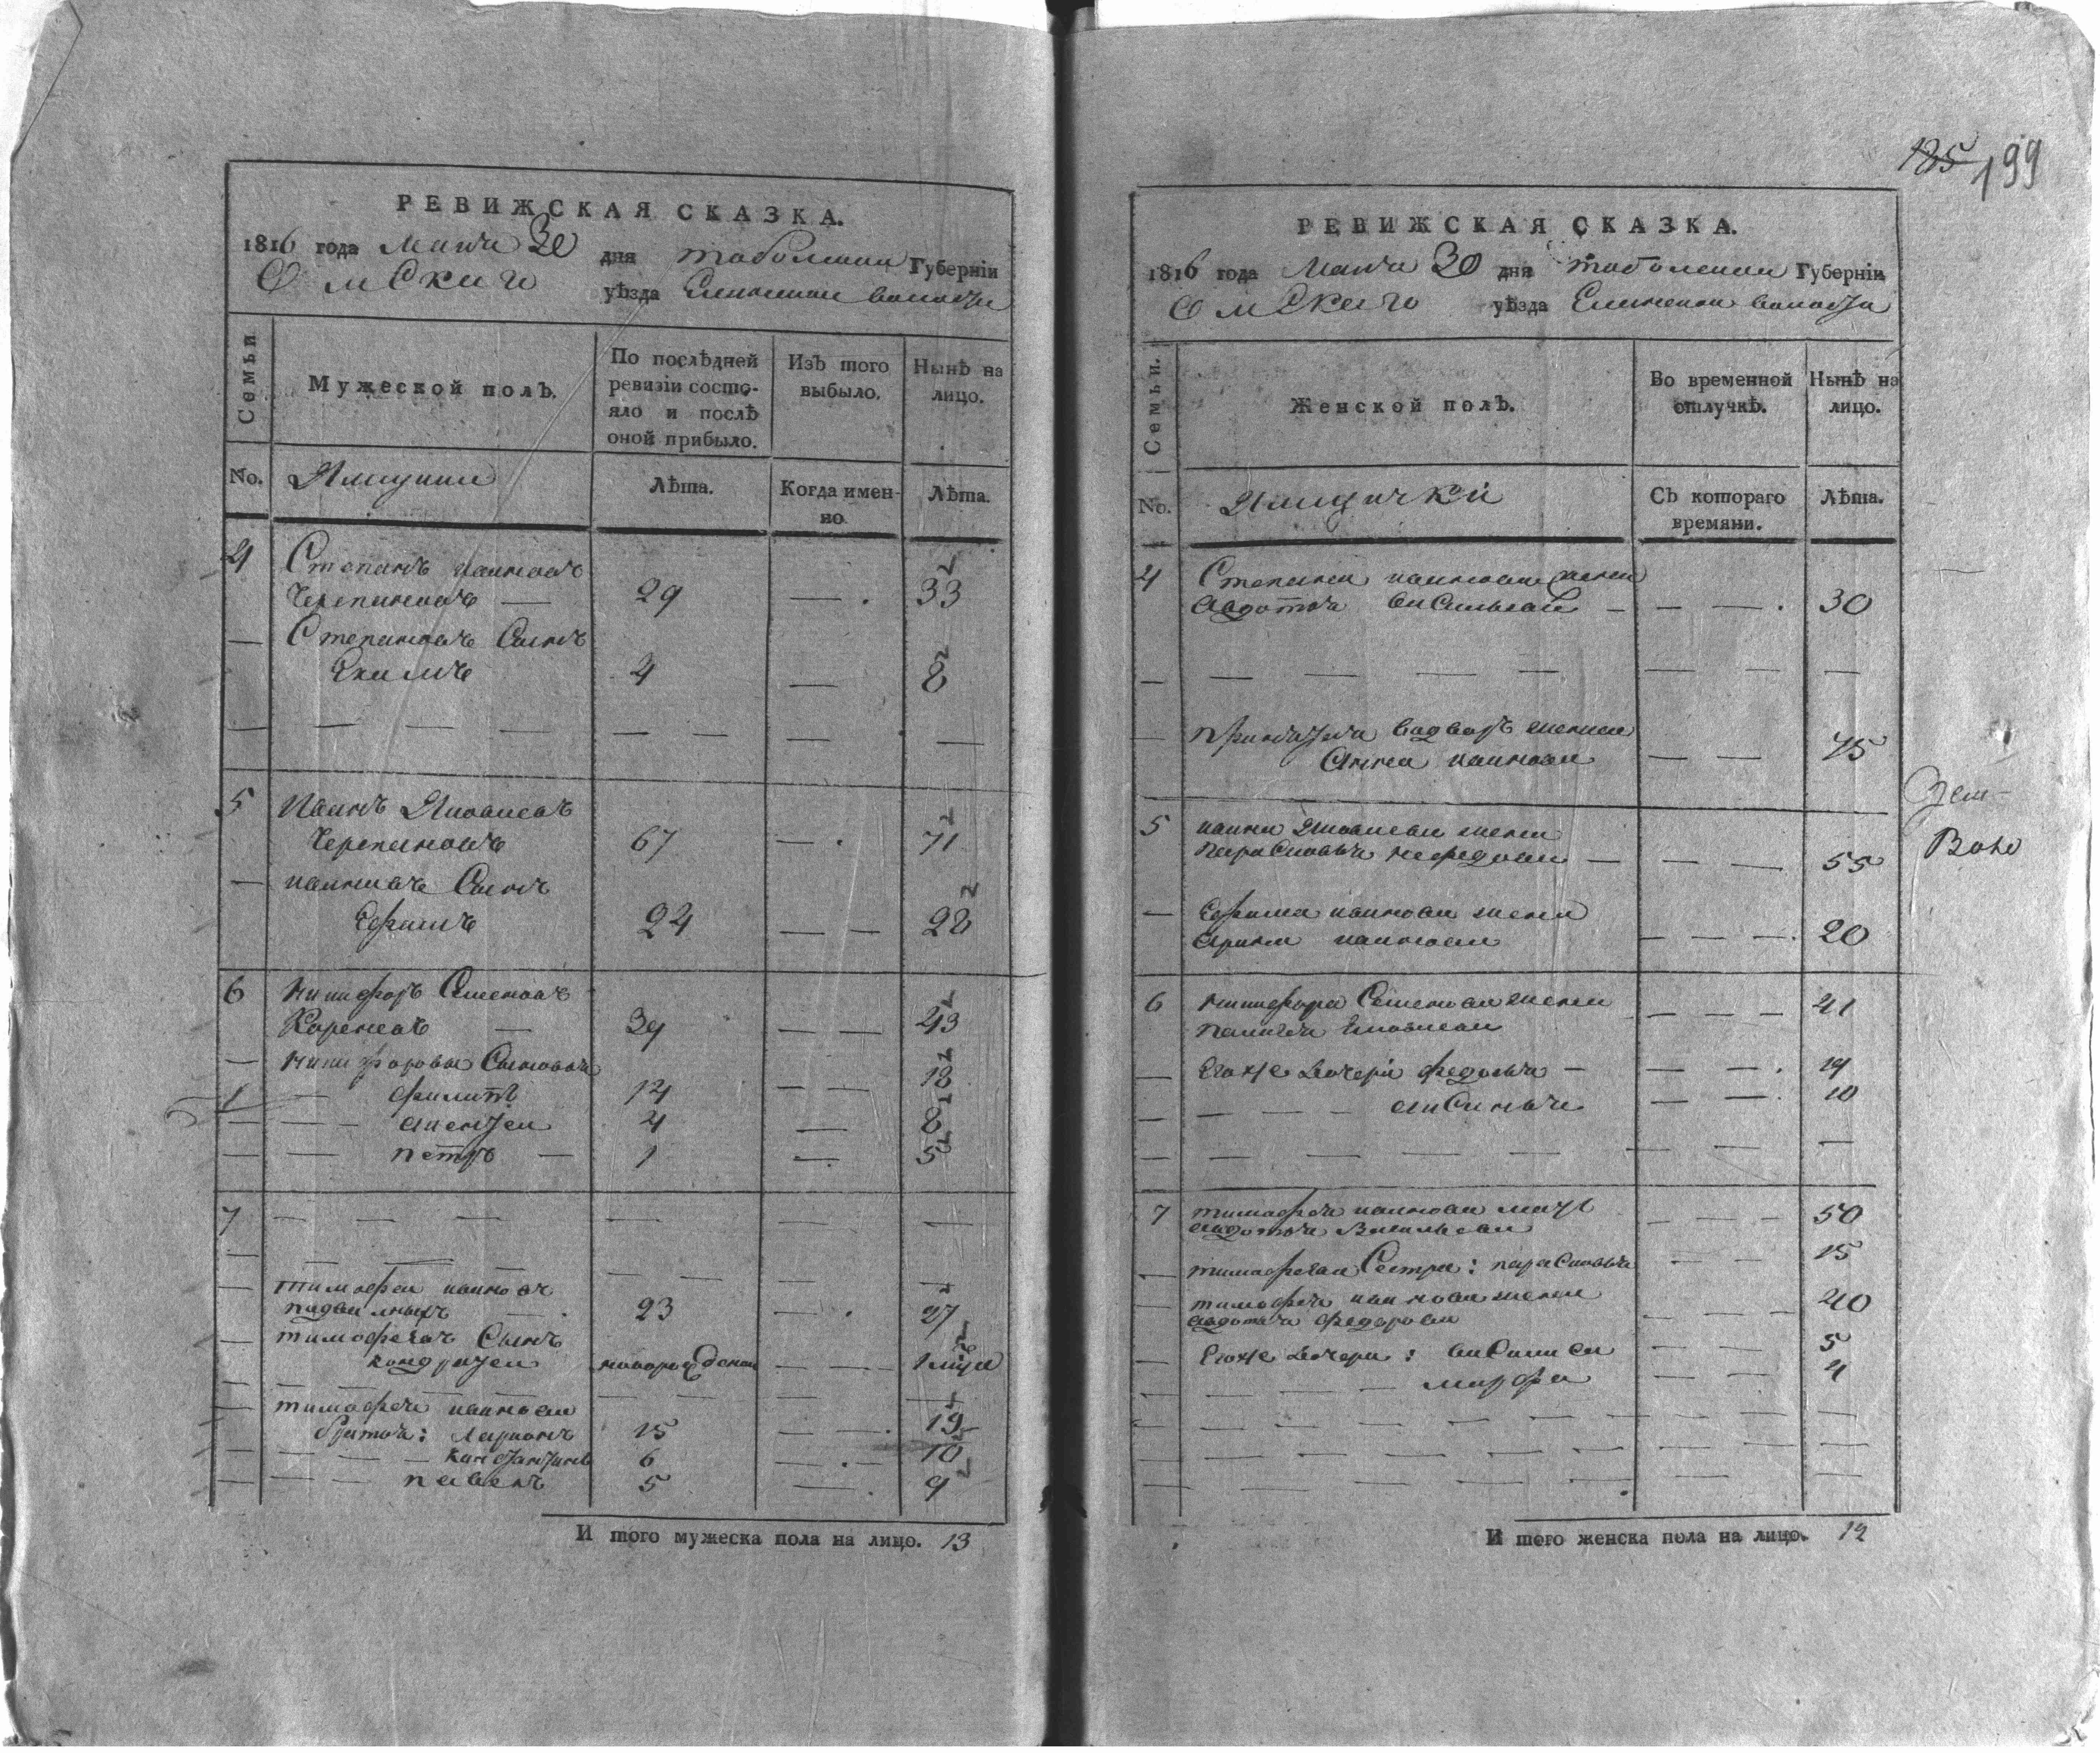 185 199
РЕВИЖСКАЯ СКАЗКА.
1816 года Маия 30 дня тобольской Губерніи
Омскаго уѣзда Еланской волости
Семьи
Мужеской полъ.
По послѣдней
ревизіи состо-
яло и послѣ
оной прибыло.
Изъ того
выбыло.
Нынѣ на
лицо.
No. Ямщики
Лѣта.
Когда имен-
но
Лѣта.
4 Степанъ ивановъ
Черепановъ — 29 — . 33
— Степановъ Сынъ
Екимъ 4 — 8
5 Иванъ Яковлевъ
Черепановъ 67 — . 71
— ивановъ Сынъ
Ефимъ 24 — — 28
6 никифоръ Семеновъ
Кореневъ — 39 — — 43
— никифоровы Сыновья
1 — филипъ 14 — — 18
— — — аментеи 4 — 8
— — петръ — 1 — . 5
7 — — — — — —
— тимофеи ивановъ
— . 23 — . 27
— тимофеевъ Сынъ
кондратеи новорожденои — — 1 мца
— тимофея иванова
братья: Ларионъ 15 — — . 19
— — — константинъ 6 — . — 10
— — — павелъ 5 — . 9
И того мужеска пола на лицо. 13
РЕВИЖСКАЯ СКАЗКА.
1816 года Маия 30 дня тобольской Губерніи
Омскаго уѣзда Еланской волости
Семьи.
Женской полъ.
Во временной
отлучкѣ.
Нынѣ на
лицо.
No. Ямщички
Съ котораго
времяни.
Лѣта.
4 Степана иванова жена
авдотья васильева — — — . 30
— — — — — — — — —
— Принятая вадворъ женка
Анна иванова — — 75
5 ивана Яковлева жена
парасковья нефедова — — — 55
— Ефима иванова жена
арина иванова — — — . 20
6 никифора Семенова жена
пелагея Яковлева — — — 41
— Егоже дочери федосья — — — . 14
— — — — аксинья — — . 10
7 тимофея иванова мать
авдотья Васильева — — — 50
— тимофеева Сестра: парасковья — — 15
— тимофея иванова жена
авдотья федорова — — — 40
— Егоже дочери: василиса — — 5
— — — — марфа — — 4
И того женска пола на лицо. 12